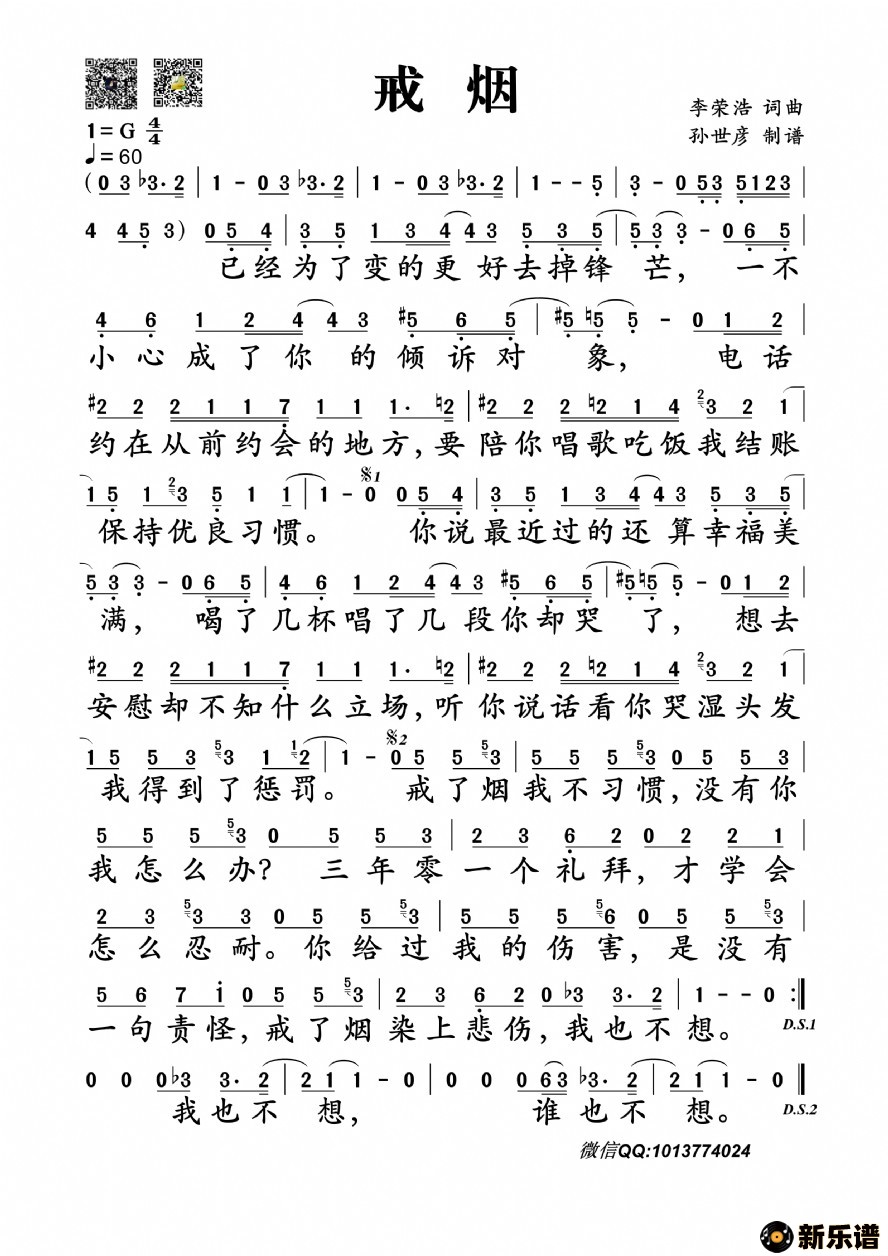 戒 烟
李荣浩 词曲
1=G 4/4
孙世彦 制谱
♩=60
(0 3 ♭3· 2 | 1 - 0 3 ♭3· 2 | 1 - 0 3 ♭3· 2 | 1 - - 5 | 3 - 0 5 3 5 1 2 3 |
4 4 5 3) 0 5 4 | 3 5 1 3 4 4 3 5 3 5 | 5 3 3 - 0 6 5 |
已经为了变的更 好去掉锋 芒， 一不
4 6 1 2 4 4 3 #5 6 5 | #5 ♮5 5 - 0 1 2 |
小心成了你 的倾诉对 象， 电话
#2 2 2 1 1 7 1 1 1· ♮2 | #2 2 2 ♮2 1 4 2 3 2 1 |
约在从前约会的地方，要 陪你唱歌吃饭我结账
1 5 1 2 3 5 1 1 | 1 - 0 𝄋1 0 5 4 | 3 5 1 3 4 4 3 5 3 5 |
保持优良习惯。 你说最近过的还 算幸福美
5 3 3 - 0 6 5 | 4 6 1 2 4 4 3 #5 6 5 | #5 ♮5 5 - 0 1 2 |
满， 喝了几杯唱了几 段你却哭 了， 想去
#2 2 2 1 1 7 1 1 1· ♮2 | #2 2 2 ♮2 1 4 2 3 2 1 |
安慰却不知什么立场，听 你说话看你哭湿头发
1 5 5 3 5 3 1 1 2 | 1 - 𝄋2 0 5 5 3 5 3 | 5 5 5 3 0 5 5 3 |
我得到了惩罚。 戒了烟我不习惯，没有你
5 5 5 5 3 0 5 5 3 | 2 3 6 2 0 2 2 1 |
我怎么办？ 三年零一个礼拜，才学会
2 3 5 3 3 0 5 5 3 | 5 5 5 5 6 0 5 5 5 3 |
怎么忍耐。你给过我的伤害，是没有
5 6 7 1 0 5 5 5 3 | 2 3 6 2 0 ♭3 3· 2 | 1 - - 0 :||
一句责怪，戒了烟染上悲伤，我也不想。 D.S.1
0 0 0 ♭3 3· 2 | 2 1 1 - 0 | 0 0 0 3 3 ♭3· 2 | 2 1 1 - 0 ||
我也不 想， 谁也不 想。 D.S.2
微信QQ:1013774024
新乐谱